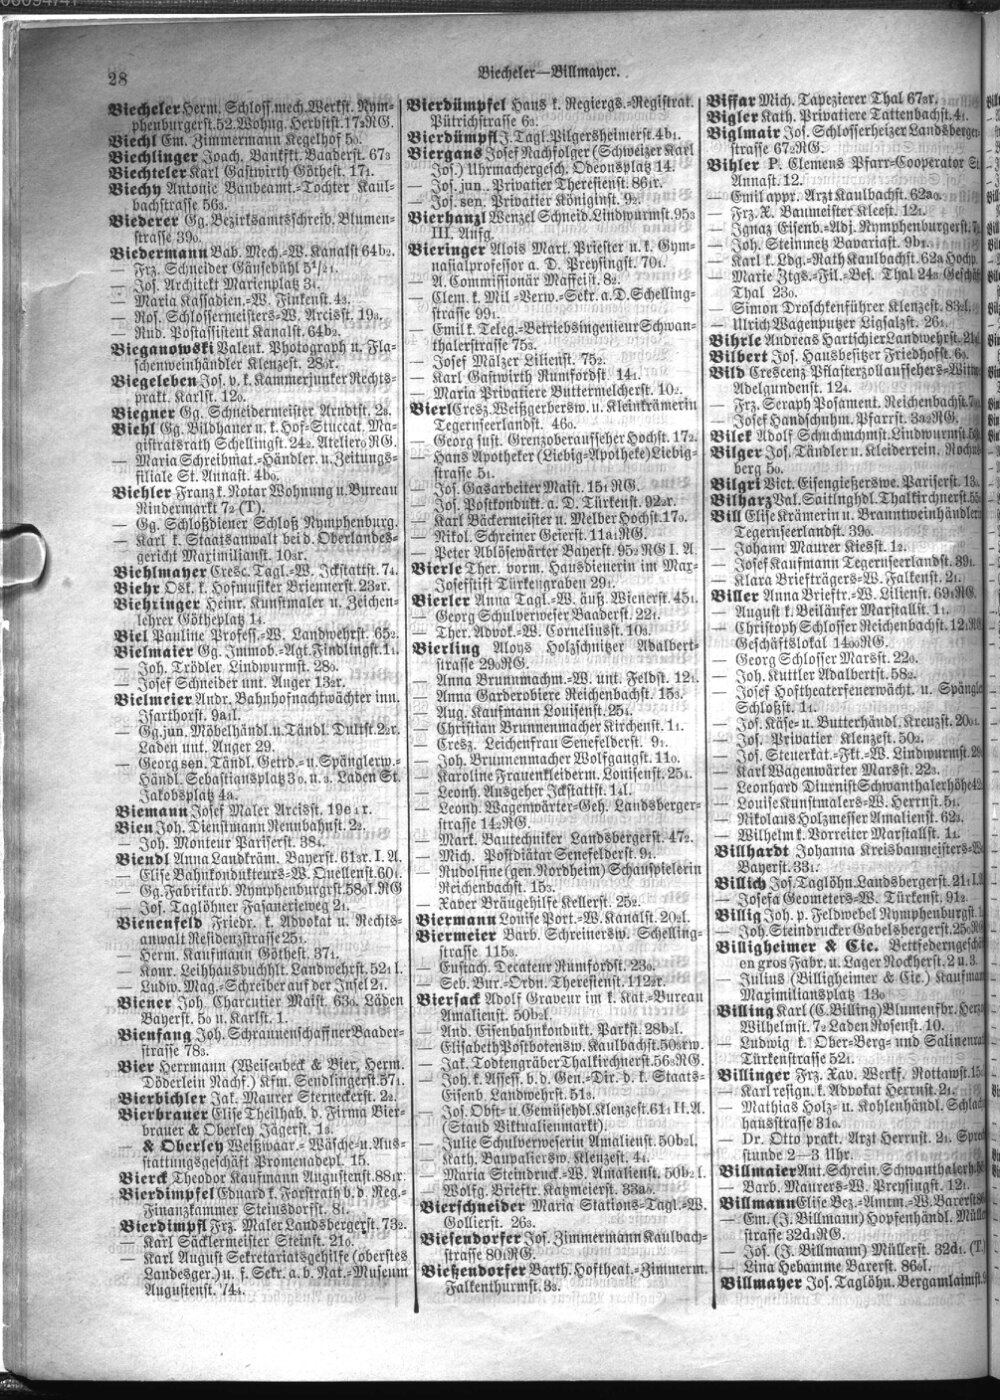 28
Biecheler—Billmayer.
Biecheler Herm. Schloss. mech. Werkst. Nym-
phenburgerst. 52. Wohng. Herbstst. 17₂RG.
Biechl Em. Zimmermann Kegelhof 5₀.
Biechlinger Joach. Bankftt. Baaderst. 67₃
Biechteler Karl Gastwirth Göthest. 17₁.
Biechy Antonie Baubeamt.-Tochter Kaul-
bachstrasse 56₃.
Biederer Gg. Bezirksamtsschreib. Blumen-
strasse 39₀.
Biedermann Bab. Mech.-W. Kanalst 64b₂.
— Frz. Schneider Gänsebühl 5¹/₂₁.
— Jos. Architekt Marienplatz 3₁.
— Maria Kassadien.-W. Finkenst. 4₃.
— Ros. Schlossermeisters-W. Arcisst. 19₃.
— Rud. Postassistent Kanalst. 64b₂.
Bieganowski Valent. Photograph u. Fla-
schenweinhändler Klenzest. 28₀r.
Biegeleben Jos. v. k. Kammerjunker Rechts-
prakt. Karlst. 12₀.
Biegner Gg. Schneidermeister Arndtst. 2₃.
Biehl Gg. Bildhauer u. k. Hof-Stuccat. Ma-
gistratsrath Schellingst. 24₂. Atelier₀RG.
— Maria Schreibmat.-Händler. u. Zeitungs-
filiale St. Annast. 4b₀.
Biehler Franz k. Notar Wohnung u. Bureau
Rindermarkt 7₂ (T).
— Gg. Schloßdiener Schloß Nymphenburg.
— Karl k. Staatsanwalt bei d. Oberlandes-
gericht Maximilianst. 10₃r.
Biehlmayer Cresc. Tagl.-W. Ickstattst. 7₄.
Biehr Osk. k. Hofmusiker Briennerst. 23₂r.
Biehringer Heinr. Kunstmaler u. Zeichen-
lehrer Götheplatz 1₄.
Biel Pauline Profess.-W. Landwehrst. 65₂.
Bielmaier Gg. Immob.-Agt. Findlingst. 1₁.
— Joh. Trödler Lindwurmst. 28₀.
— Josef Schneider unt. Anger 13₂r.
Bielmeier Andr. Bahnhofnachtwächter inn.
Isarthorst. 9a₁l.
— Gg. jun. Möbelhändl. u. Tändl. Tultst. 2₂r.
Laden unt. Anger 29.
— Georg sen. Tändl. Getrd.- u. Spänglerw.-
Händl. Sebastiansplatz 3₀. u. 3. Laden St.
Jakobsplatz 4a.
Biemann Josef Maler Arcisst. 19e₁r.
Bien Joh. Dienstmann Rennbahnst. 2₂.
— Joh. Monteur Pariserst. 38₄.
Biendl Anna Landkräm. Bayerst. 61₃r. I. A.
— Elise Bahnkondukteurs-W. Quellenst. 60₁.
— Gg. Fabrikarb. Nymphenburgst. 58₀l. RG
— Jos. Taglöhner Fasanerieweg 2₁.
Bienenfeld Friedr. k. Advokat u. Rechts-
anwalt Residenzstrasse 25₁.
— Herm. Kaufmann Göthest. 37₁.
— Konr. Leihhausbuchhlt. Landwehrst. 52₁l.
— Ludw. Mag.-Schreiber auf der Insel 2₁.
Biener Joh. Charcutier Maist. 63₀. Läden
Bayerst. 5₀ u. Karlst. 1.
Bienfang Joh. Schrannenschaffner Baader-
strasse 78₃.
Bier Herrmann (Weisenbeck & Bier, Herm.
Döderlein Nachf.) Kfm. Sendlingerst. 57₁.
Bierbichler Jak. Maurer Sterneckerst. 2₂.
Bierbrauer Elise Theilhab. d. Firma Bier-
brauer & Oberley Jägerst. 1₃.
— & Oberley Weißwaar.- Wäsche- u. Aus-
stattungsgeschäft Promenadepl. 15.
Bierck Theodor Kaufmann Augustenst. 88₁r.
Bierdimpfel Eduard k. Forstrath b. d. Reg.-
Finanzkammer Steinsdorfst. 8₁.
Bierdimpfl Frz. Maler Landsbergerst. 73₂.
— Karl Säcklermeister Steinst. 21₀.
— Karl August Sekretariatsgehilfe (oberstes
Landesger.) u. f. Sekr. a. b. Nat.-Museum
Augustenst. 74₄.
Bierdümpfel Hans k. Regiergs.-Registrat.
Pütrichstrasse 6₃.
Bierdümpfl J. Tagl. Pilgersheimerst. 4b₁.
Biergans Josef Nachfolger (Schweizer Karl
Jos.) Uhrmachergesch. Odeonsplatz 14.
— Jos. jun. Privatier Theresienst. 86₁r.
— Jos. sen. Privatier Königinst. 9₂.
Bierhanzl Wenzel Schneid. Lindwurmst. 95₃
III. Aufg.
Bieringer Alois Mart. Priester u. k. Gym-
nasialprofessor a. D. Preysingst. 70₁.
— A. Commissionär Maffeist. 8₂.
— Clem. k. Mil-Verw.-Sekr. a. D. Schelling-
strasse 99₁.
— Emil k. Teleg.-Betriebsingenieur Schwan-
thalerstrasse 75₃.
— Josef Mälzer Lilienst. 75₂.
— Karl Gastwirth Rumfordst. 14₁.
— Maria Privatiere Buttermelcherst. 10₂.
Bierl Cresz. Weißgerbersw. u. Kleinkrämerin
Tegernseerlandst. 46₀.
— Georg sust. Grenzoberausseher Hochst. 17₂.
— Hans Apotheker (Liebig-Apotheke) Liebig-
strasse 5₁.
— Jos. Gasarbeiter Maist. 15₁RG.
— Jos. Postkondukt. a. D. Türkenst. 92₂r.
— Karl Bäckermeister u. Melber Hochst. 17₀.
— Nikol. Schreiner Geierst. 11a₁RG.
— Peter Ablösewärter Bayerst. 95₂RG I. A.
Bierle Ther. vorm. Hausdienerin im Max-
Josefstift Türkengraben 29₁.
Bierler Anna Tagl.-W. äuß. Wienerst. 45₁.
— Georg Schulverweser Baaderst. 22₁.
— Ther. Advok.-W. Corneliusst. 10₃.
Bierling Aloys Holzschnitzer Adalbert-
strasse 29₀RG.
— Anna Brunnmachm.-W. unt. Feldst. 12₁.
— Anna Garderobiere Reichenbachst. 15₃.
— Aug. Kaufmann Louisenst. 25₄.
— Christian Brunnenmacher Kirchenst. 1₁.
— Cresz. Leichenfrau Senefelderst. 9₁.
— Joh. Brunnenmacher Wolfgangst. 11₀.
— Karoline Frauenkleiderm. Louisenst. 25₄.
— Leonh. Ausgeher Ickstattst. 1₄l.
— Leonh. Wagenwärter-Geh. Landsberger-
strasse 14₂RG.
— Mark. Bautechniker Landsbergerst. 47₂.
— Mich. Postdiätar Senefelderst. 9₁.
— Rudolfine (gen. Nordheim) Schauspielerin
Reichenbachst. 15₃.
— Xaver Bräugehilfe Kellerst. 25₂.
Biermann Louise Port.-W. Kanalst. 20₂l.
Biermeier Barb. Schreinersw. Schelling-
strasse 115₃.
— Eustach. Decateur Rumfordst. 23₀.
— Seb. Bur.-Ordn. Theresienst. 112₂r.
Biersack Adolf Graveur im k. Kat.-Bureau
Amalienst. 50b₂l.
— And. Eisenbahnkondukt. Parkst. 28b₂l.
— Elisabeth Postbotensw. Kaulbachst. 50₃rw.
— Jak. Todtengräber Thalkirchnerst. 56₃RG.
— Joh. k. Assess. b. d. Gen.-Dir. d. k. Staats-
Eisenb. Landwehrst. 51₃.
— Jos. Obst- u. Gemüsehdl. Klenzest. 61₁ II. A.
(Stand Viktualienmarkt).
— Julie Schulverweserin Amalienst. 50b₂l.
— Kath. Bauvaliersw. Klenzest. 4₁.
— Maria Steindruck.-W. Amalienst. 50b₂l.
— Wolfg. Brieftr. Katzmeierst. 33a₀.
Bierschneider Maria Stations-Tagl.-W.
Gollierst. 26₃.
Biesendorfer Jos. Zimmermann Kaulbach-
strasse 80₁RG.
Bießendorfer Barth. Hoftheat.-Zimmerm.
Falkenthurmst. 3₃.
Biffar Mich. Tapezierer Thal 67₂r.
Bigler Kath. Privatiere Tattenbachst. 4₁.
Biglmair Jos. Schlosserheizer Landsberger-
strasse 67₂RG.
Bihler P. Clemens Pfarr-Cooperator St.
Annast. 12.
— Emil appr. Arzt Kaulbachst. 62a₀.
— Frz. X. Baumeister Kleest. 12₁.
— Ignaz Eisenb.-Adj. Nymphenburgerst.
— Joh. Steinmetz Bavariast. 9b₁.
— Karl k. Ldg.-Rath Kaulbachst. 62a Hochp.
— Marie Ztgs.-Fil.-Bes. Thal 24₃ Geschäft
Thal 23₀.
— Simon Droschkenführer Klenzest. 83₂l.
— Ulrich Wagenputzer Ligsalzst. 26₁.
Bihrle Andreas Hartschier Landwehrst. 21
Bilbert Jos. Hausbesitzer Friedhofst. 6₃.
Bild Crescenz Pflasterzollaussehers-Wittwe
Adelgundenst. 12₄.
— Frz. Seraph Posament. Reichenbachst.
— Josef Handschuhm. Pfarrst. 3a₂RG.
Bilek Adolf Schuchmchmst. Lindwurmst.
Bilger Jos. Tändler u. Kleiderrein. Rochus-
berg 5₀.
Bilgri Vict. Eisengießersw. Pariserst. 13₀.
Bilharz Val. Saitlnghdl. Thalkirchnerst. 55
Bill Elise Krämerin u. Branntweinhändlerin
Tegernseerlandst. 39₀.
— Johann Maurer Kiesst. 1₂.
— Josef Kaufmann Tegernseerlandst. 39₁.
— Klara Briefträgers-W. Falkenst. 2₁.
Biller Anna Brieftr.-W. Lilienst. 69₁RG.
— August k. Beiläufer Marstallst. 1₁.
— Christoph Schlosser Reichenbachst. 12₁RG
Geschäftslokal 14a₀RG.
— Georg Schlosser Marsst. 22₀.
— Joh. Kuttler Adalbertst. 58₂.
— Josef Hoftheaterfeuerwächt. u. Spängler
Schloßst. 1₁.
— Jos. Käse- u. Butterhändl. Kreuzst. 20₀₁
— Jos. Privatier Klenzest. 50₂.
— Jos. Steuerkat.-Fkt.-W. Lindwurmst. 29
— Karl Wagenwärter Marsst. 22₃.
— Leonhard Diurnist Schwanthalerhöhe 42
— Louise Kunstmalers-W. Herrnst. 5₁.
— Nikolaus Holzmesser Amalienst. 62₃.
— Wilhelm k. Vorreiter Marstallst. 1₁.
Billhardt Johanna Kreisbaumeisters-W.
Bayerst. 33₁.
Billich Jos. Taglöhn. Landsbergerst. 21₁
— Josefa Geometers-W. Türkenst. 91₂.
Billig Joh. p. Feldwebel Nymphenburgst.
— Joh. Steindrucker Gabelsbergerst. 25₀RG
Billigheimer & Cie. Bettfederngeschäft
en gros Fabr. u. Lager Nockherst. 2 u. 3.
— Julius (Billigheimer & Cie.) Kaufmann
Maximiliansplatz 13₀
Billing Karl (C. Billing) Blumenfbr. Herzog
Wilhelmst. 7₂ Laden Rosenst. 10.
— Ludwig k. Ober-Berg- und Salinenrath
Türkenstrasse 52₁.
Billinger Frz. Xav. Werkf. Rottawst. 15
— Karl resign. k. Advokat Herrnst. 2₁.
— Mathias Holz- u. Kohlenhändl. Schlacht-
hausstrasse 31₀.
— Dr. Otto prakt. Arzt Herrnst. 2₁. Sprech-
stunde 2—3 Uhr.
Billmaier Ant. Schrein. Schwanthalerh.
— Barb. Maurers-W. Preysingst. 12₁.
Billmann Elise Bez.-Amtm.-W. Barerst.
— Em. (J. Billmann) Hopfenhändl. Müller-
strasse 32d₁RG.
— Jos. (J. Billmann) Müllerst. 32d₁. (T.)
— Lina Hebamme Barerst. 86₀l.
Billmayer Jos. Taglöhn. Bergamlaimst.